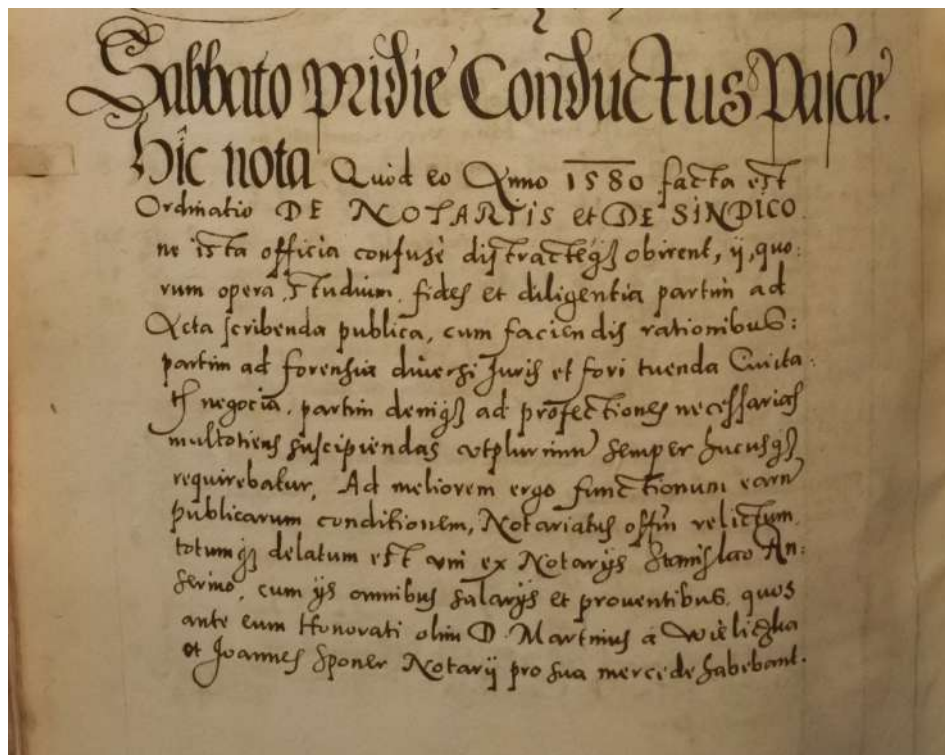 Sabbato pridie Conductus Pascæ.
Hic nota Quod eo Anno 1580 facta est
Ordinatio DE NOTARIIS et DE SINDICO
ne ista officia confusè distractéq₃ obirent, ij, quo:
rum opera, studium, fides et diligentia partim ad
Acta scribenda publica, cum faciendis rationibus:
partim ad forensia diuersi Juris et fori tuenda Ciuita:
tis negocia, partim deniq₃ ad profectiones necessarias
multotiens suscipiendas vtplurimum semper hucusq₃
requirebatur, Ad meliorem ergo functionum earum
publicarum conditionem, Notariatus offm relictum
totumq₃ delatum est vni ex Notarijs Stanislao An:
serino, cum ijs omnibus salarijs et prouentibus, quos
ante eum Honorati olim D. Martinus à Wieliczka
et Joannes Sponer Notarij pro sua mercede habebant.